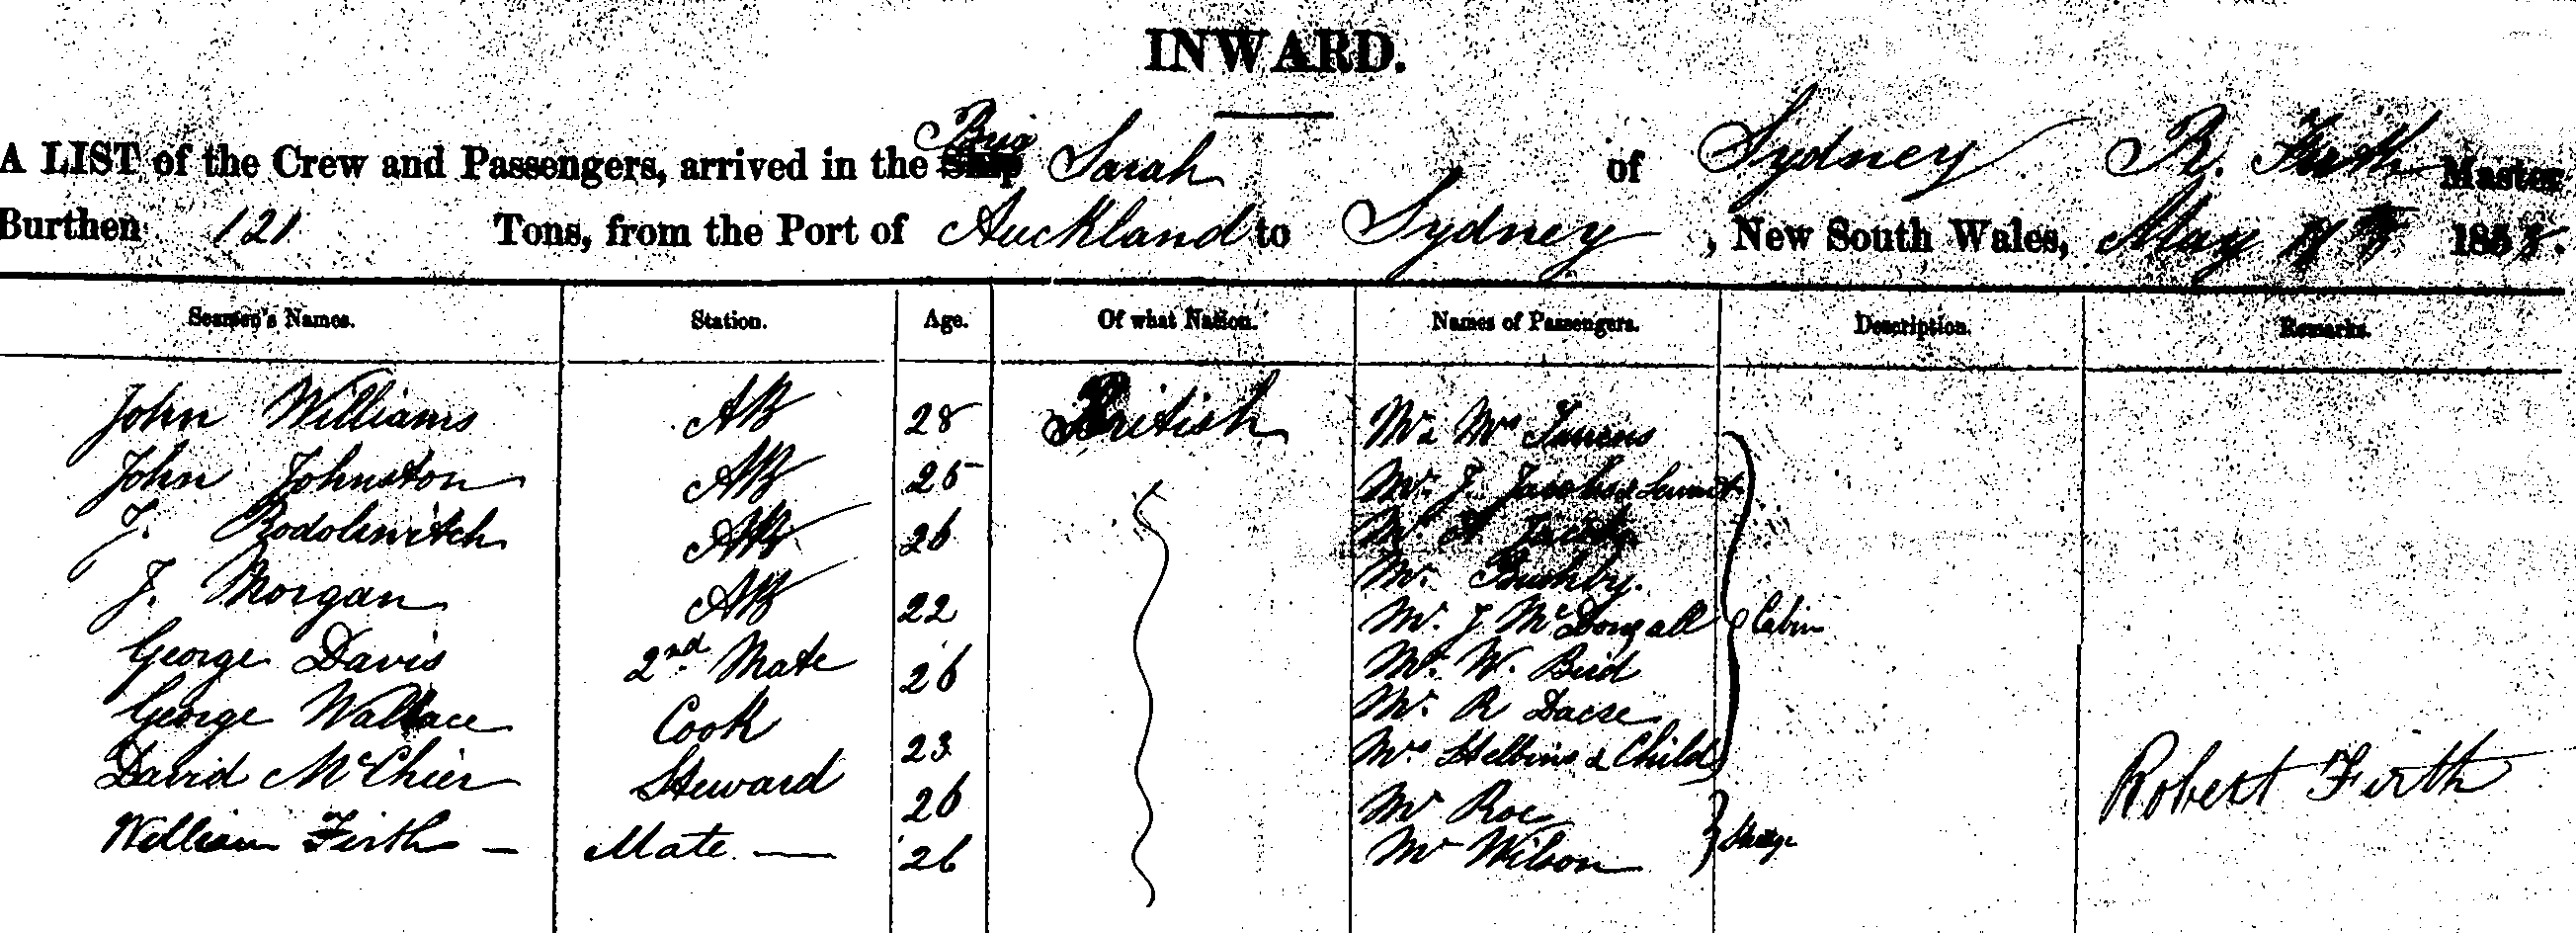 INWARD.
A LIST of the Crew and Passengers, arrived in the Brig Sarah of Sydney R. Firth Master
Burthen 121 Tons, from the Port of Auckland to Sydney, New South Wales, May 185
Seamen's Names. Station. Age. Of what Nation. Names of Passengers. Description. Remarks.
John Williams AB 28 British Mr & Mrs
John Johnston AB 25 Mr. J. Jacobs & Servant
J. AB 26 Mr.
J. Morgan AB 22 Mr. Bushby.
George Davis 2nd Mate 26 Mr. J McDougall Cabin
George Wallace Cook 23 Mr. W. Bird
David McChier Steward 26 Mr. R Dacre
William Firth — Mate — 26 Mrs Stebbins & Child
Mr Roe
Mr Wilson Steerge
Robert Firth